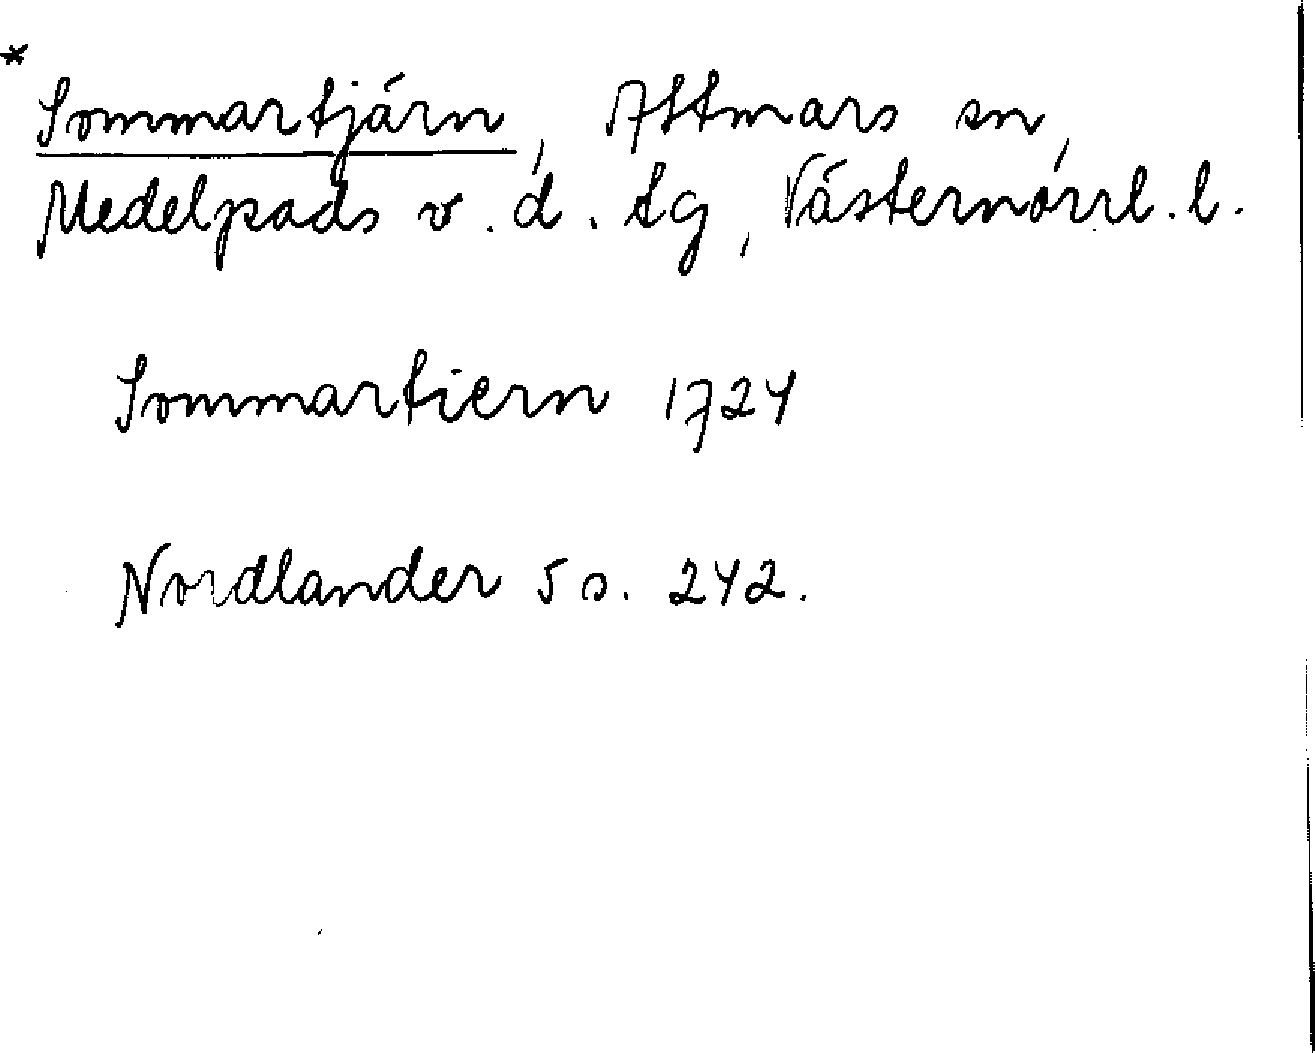 *
Sommartjärn, Attmars sn,
Medelpads v. d. tg, Västernorrl. l.
Sommartiern 1724
Nordlander 5 s. 242.